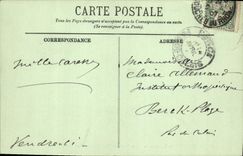 CARTE POSTALE
Tous les Pays étrangers n'acceptent pas la Correspondance au recto.
(Se renseigner à la Poste).
CORRESPONDANCE
ADRESSE
Mille Caresses
Vendredi
Mademoiselle
Claire Allemand
Institut Orthopédique
Berck-Plage
Pas de Calais